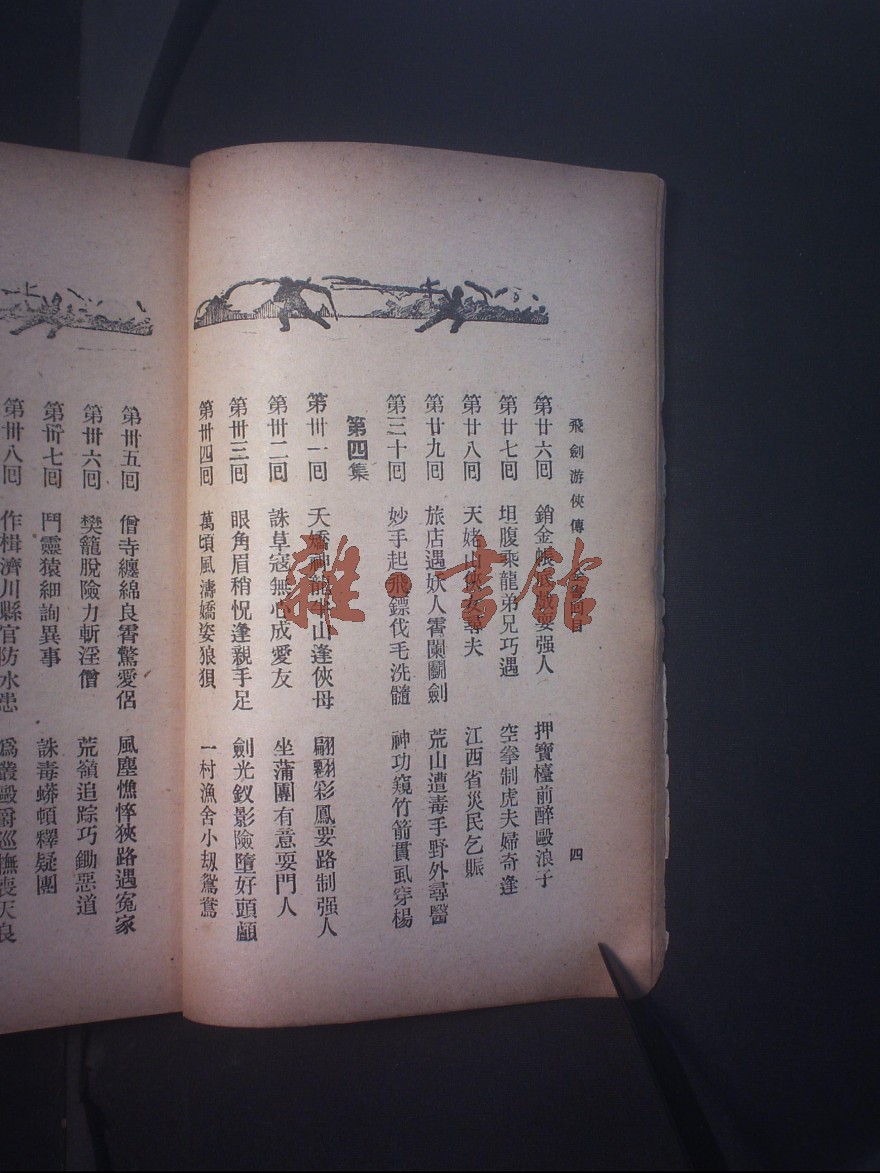 飛劍游俠傳 全書回目 四
第廿六回 銷金帳底戲耍强人 押寶檯前醉毆浪子
第廿七回 坦腹乘龍弟兄巧遇 空拳制虎夫婦奇逢
第廿八回 天姥山俠女尋夫 江西省災民乞賑
第廿九回 旅店遇妖人霄闌鬭劍 荒山遭毒手野外尋醫
第三十回 妙手起飛鏢伐毛洗髓 神功窺竹箭貫虱穿楊
第四集
第卅一回 夭矯神龍半山逢俠母 翩翻彩鳳要路制强人
第卅二回 誅草寇無心成愛友 坐蒲團有意耍門人
第卅三回 眼角眉稍怳逢親手足 劍光釵影險墮好頭顱
第卅四回 萬頃風濤嬌姿狼狽 一村漁舍小刼鴛鴦
第卅五回 僧寺纏綿良霄驚愛侶 風塵憔悴狹路遇冤家
第卅六回 樊籠脫險力斬淫僧 荒嶺追踪巧鋤惡道
第卅七回 鬥靈猿細詢異事 誅毒蟒頓釋疑團
第卅八回 作楫濟川縣官防水患 爲叢毆爵巡撫喪天良
雜·書館